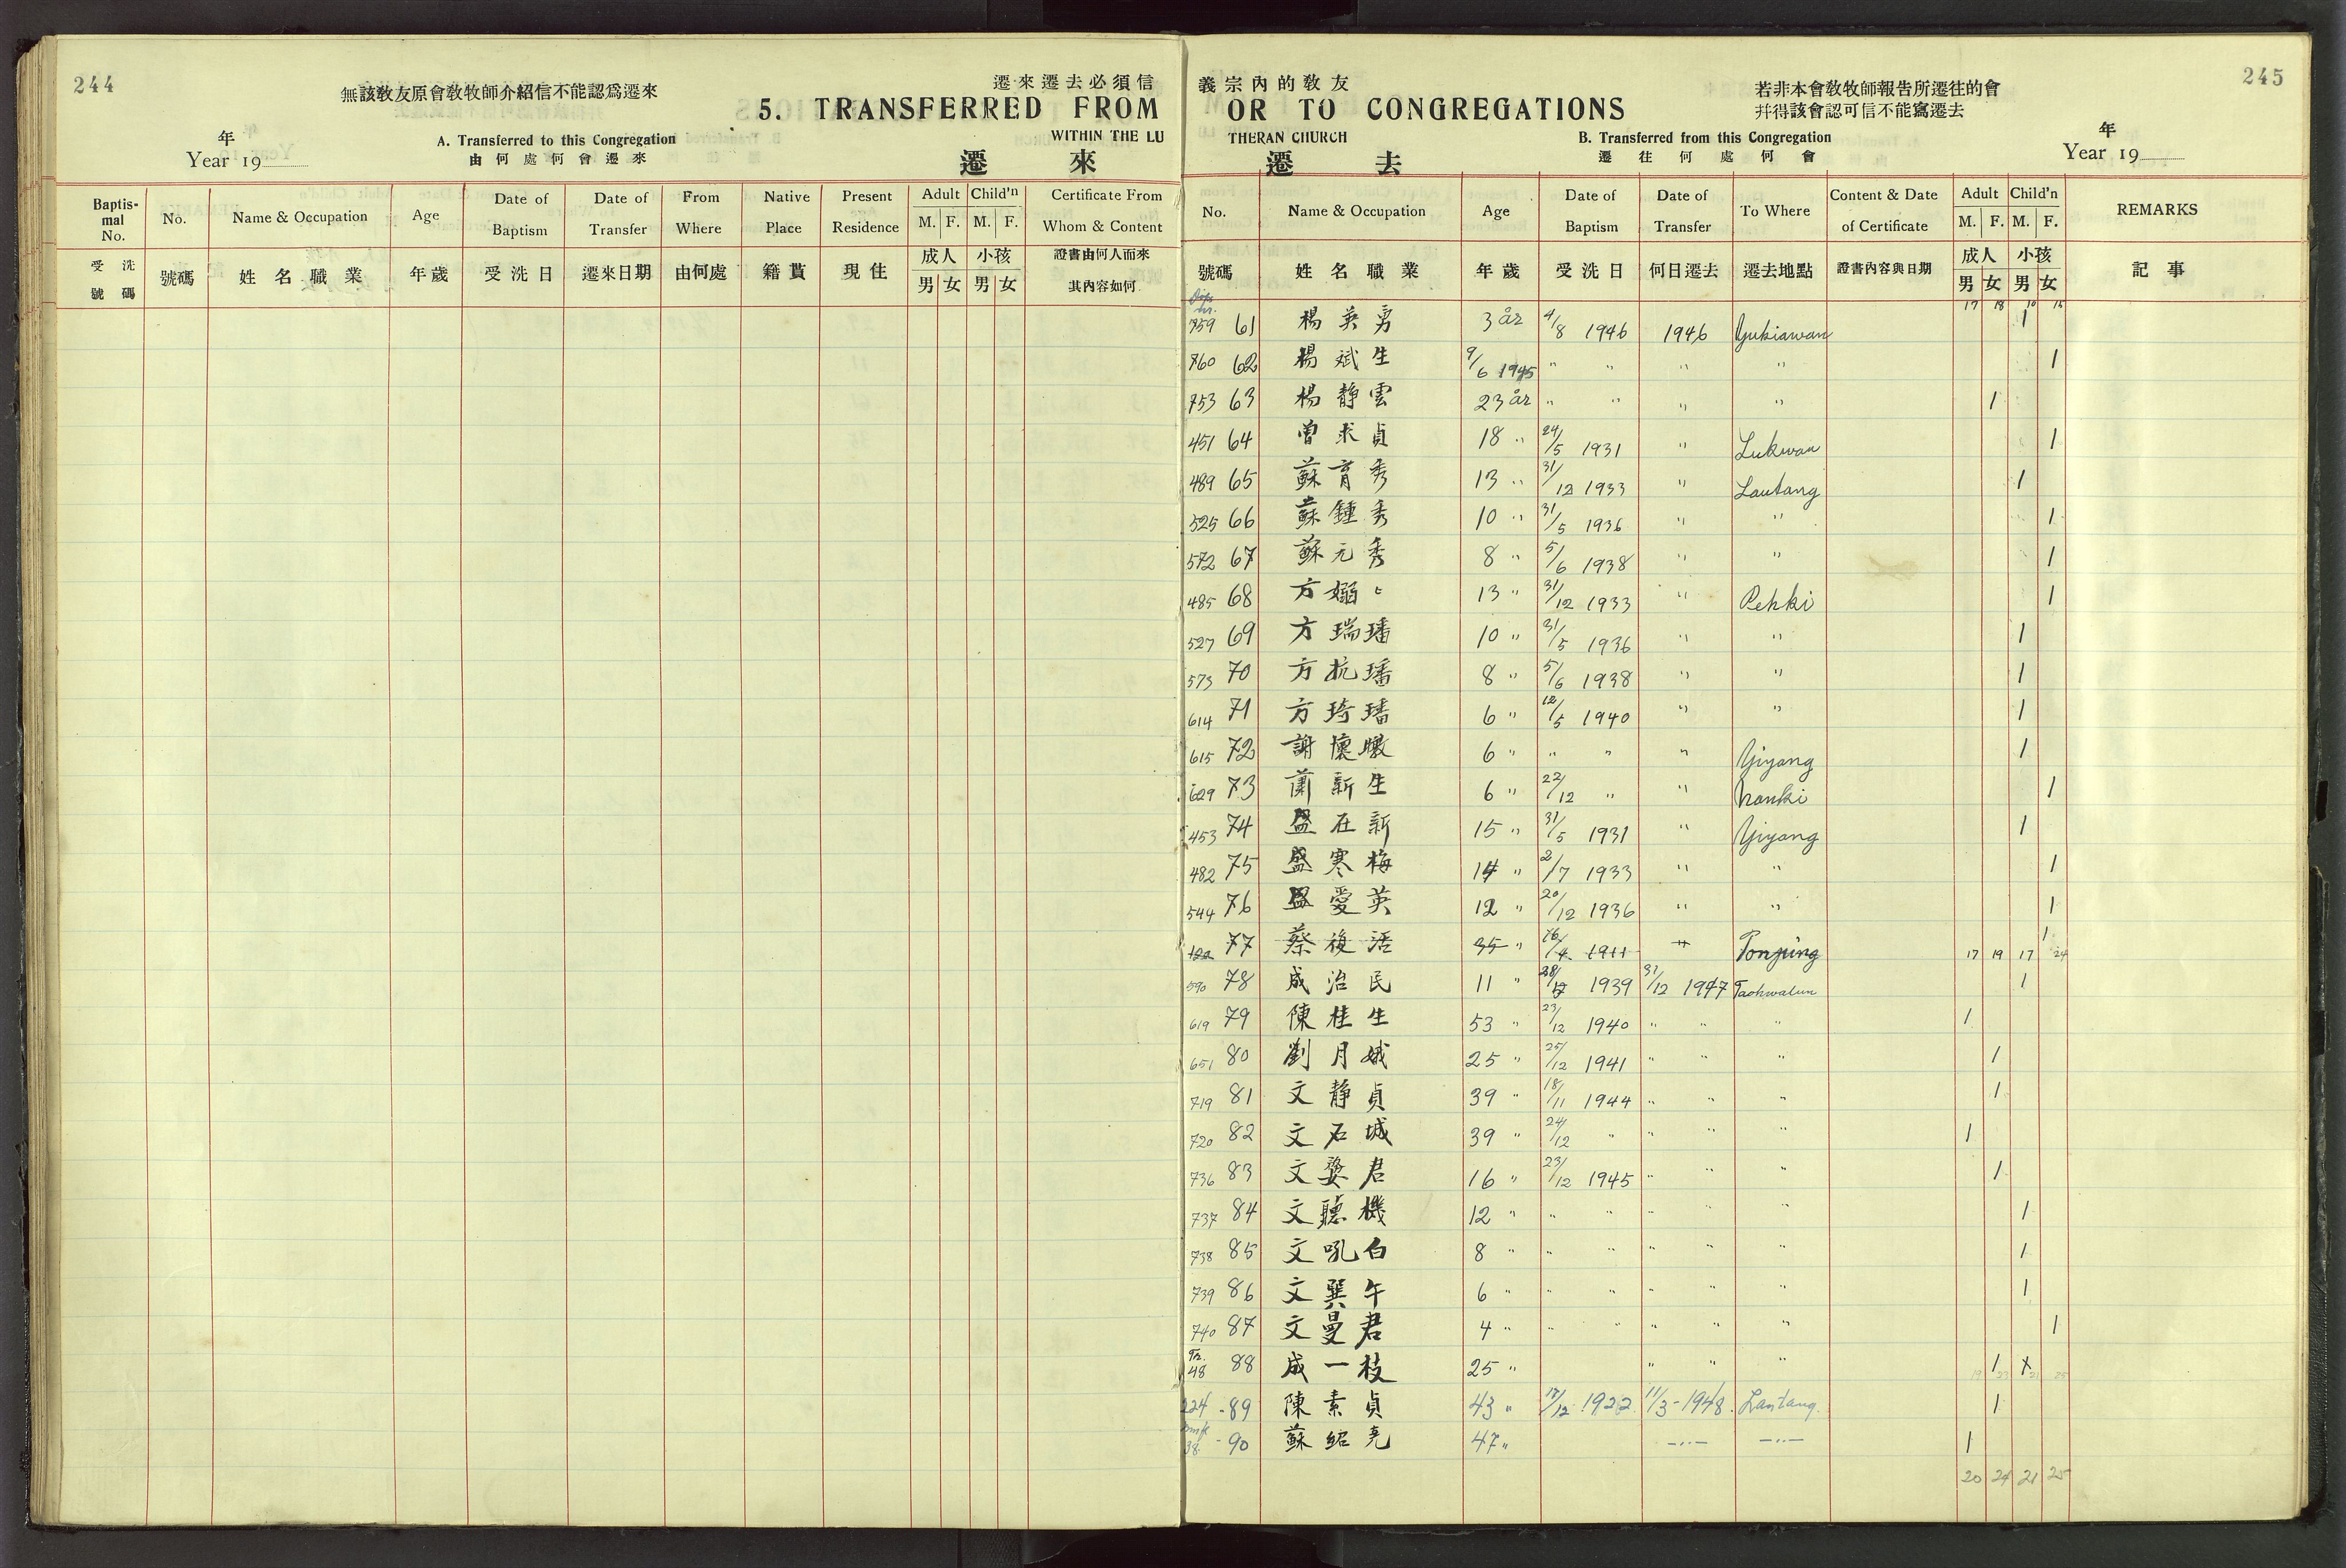 244
無該敎友原會敎牧師介紹信不能認爲遷來
遷來遷去必須信
5. TRANSFERRED FROM
年
Year 19
A. Transferred to this Congregation
WITHIN THE LU
由何處何會遷來
遷 來
Baptis-mal No. No. Name & Occupation Age Date of Baptism Date of Transfer From Where Native Place Present Residence Adult Child'n Certificate From Whom & Content
M. F. M. F.
受洗號碼 號碼 姓名職業 年歲 受洗日 遷來日期 由何處 籍貫 現住 成人 小孩 證書由何人而來 其內容如何
男 女 男 女
245
義宗內的敎友
若非本會敎牧師報吿所遷往的會
幷得該會認可信不能寫遷去
OR TO CONGREGATIONS
THERAN CHURCH
B. Transferred from this Congregation
年
Year 19
遷往何處何會
遷 去
No. Name & Occupation Age Date of Baptism Date of Transfer To Where Content & Date of Certificate Adult Child'n REMARKS
M. F. M. F.
號碼 姓名職業 年歲 受洗日 何日遷去 遷去地點 證書內容與日期 成人 小孩 記事
男 女 男 女
17 18 10 15
759 61 楊英勇 3 år 4/8 1946 1946 Yukiawan 1
760 62 楊斌生 9/6 1945 " " " " 1
753 63 楊靜雲 23 år " " " " 1
451 64 曾求貞 18 " 24/5 1931 " Lukwan 1
489 65 蘇育秀 13 " 31/12 1933 " Lautang 1
525 66 蘇鍾秀 10 " 31/5 1936 " " 1
572 67 蘇元秀 8 " 5/6 1938 " " 1
485 68 方嫋〻 13 " 31/12 1933 " Pehki 1
527 69 方瑞璠 10 " 31/5 1936 " " 1
573 70 方抗璠 8 " 5/6 1938 " " 1
614 71 方琦璠 6 " 12/5 1940 " " 1
615 72 謝懷 6 " " " " Yiyang 1
629 73 蕭新生 6 " 22/12 " " Nanki 1
453 74 盛在新 15 " 31/5 1931 " Yiyang 1
482 75 盛寒梅 14 " 2/7 1933 " " 1
544 76 盛愛英 12 " 20/12 1936 " " 1
122 77 蔡復活 35 " 16/4 1911 " Tonping 1
17 19 17 24
590 78 成治民 11 " 1939 31/12 1947 Taohwalun 1
619 79 陳桂生 53 " 23/12 1940 " " " 1
651 80 劉月娥 25 " 25/12 1941 " " " 1
719 81 文靜貞 39 " 18/11 1944 " " " 1
720 82 文石城 39 " 24/12 " " " " 1
736 83 文婺君 16 " 23/12 1945 " " " 1
737 84 文聽機 12 " " " " " " 1
738 85 文吼白 8 " " " " " " 1
739 86 文巽午 6 " " " " " " 1
740 87 文曼君 4 " " " " " " 1
Tr. 48 88 成一枝 25 " " " " 1
224 - 89 陳素貞 43 " 17/12 1922 11/3 - 1948 Lautang 1
38 - 90 蘇紹堯 47 " -"- -"- 1
20 24 21 25